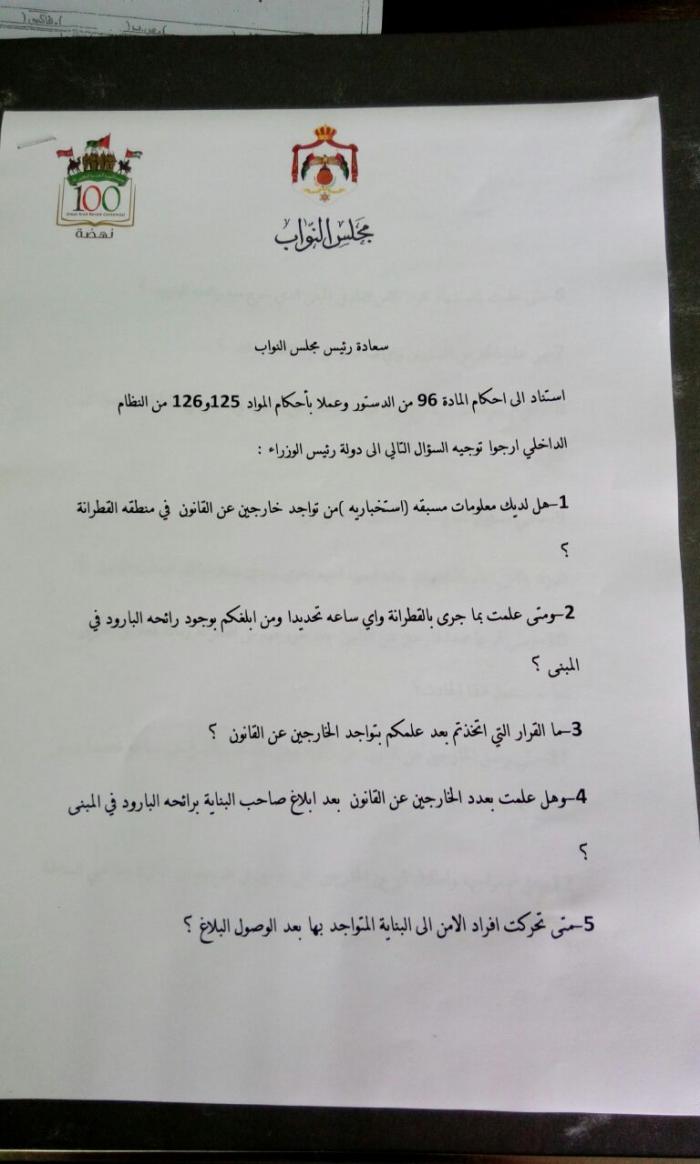 100
Great Arab Revolt Centennial
نهضة
مجلس النواب
سعادة رئيس مجلس النواب
استناد الى احكام المادة 96 من الدستور وعملا بأحكام المواد 125و126 من النظام
الداخلي ارجوا توجيه السؤال التالي الى دولة رئيس الوزراء :
1-هل لديك معلومات مسبقه (استخباريه )من تواجد خارجين عن القانون في منطقه القطرانة
؟
2-ومتى علمت بما جرى بالقطرانة واي ساعه تحديدا ومن ابلغكم بوجود رائحه البارود في
المبنى ؟
3-ما القرار التي اتخذتم بعد علمكم بتواجد الخارجين عن القانون ؟
4-وهل علمت بعدد الخارجين عن القانون بعد ابلاغ صاحب البناية برائحه البارود في المبنى
؟
5-متى تحركت افراد الامن الى البناية المتواجد بها بعد الوصول البلاغ ؟